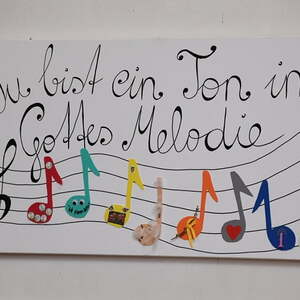 Du bist ein Ton in
Gottes Melodie